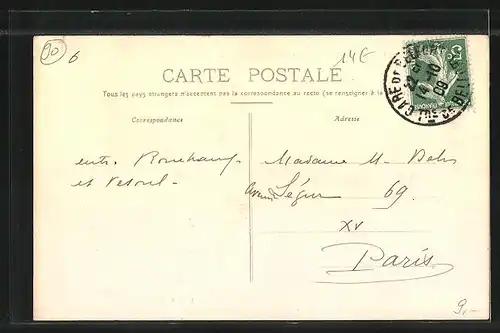 90
6
14E
CARTE POSTALE
Tous les pays étrangers n'acceptent pas la correspondance au recto (se renseigner à la
Correspondance
Adresse
GARE DE
14-10
09
5c
entre Ronchamp
et Vesoul-
Madame M-
Avenue Ségur 69.
XV
Paris
9,-